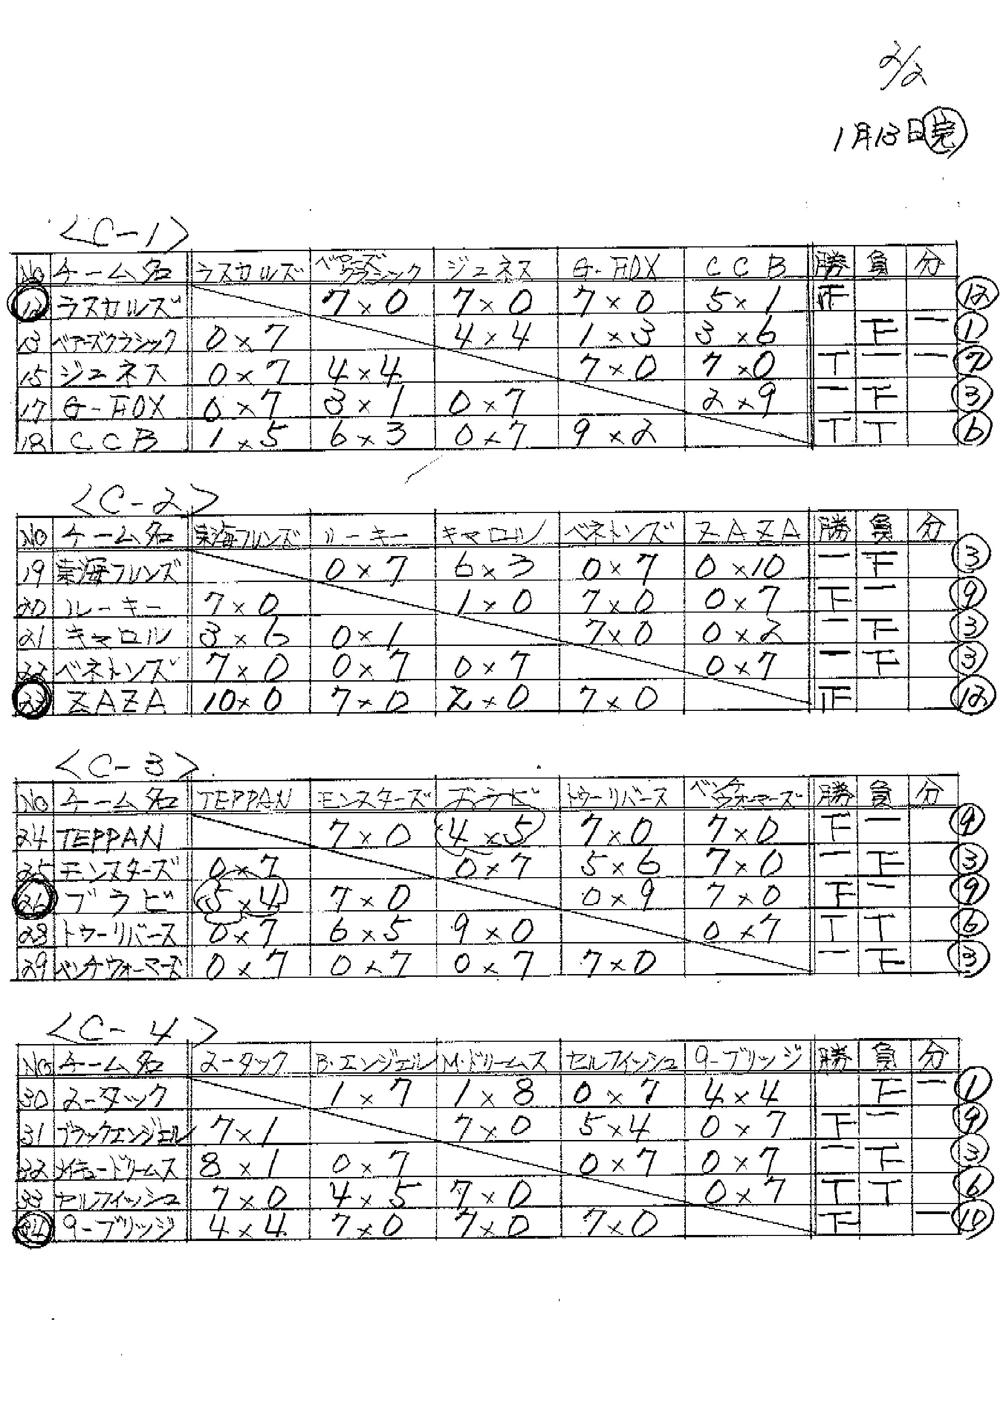 2/2
1月13日 完
<C-1>
No チーム名 ラスカルズ ベアーズクラシック ジュネス G-FOX CCB 勝 負 分
12 ラスカルズ 7×0 7×0 7×0 5×1 正 12
13 ベアーズクラシック 0×7 4×4 1×3 3×6 下 一 1
15 ジュネス 0×7 4×4 7×0 7×0 T 一 一 7
17 G-FOX 0×7 3×1 0×7 2×9 一 下 3
18 CCB 1×5 6×3 0×7 9×2 T T 6
<C-2>
No チーム名 東海フレンズ ルーキー キャロル ベネトンズ ZAZA 勝 負 分
19 東海フレンズ 0×7 6×3 0×7 0×10 一 下 3
20 ルーキー 7×0 1×0 7×0 0×7 下 一 9
21 キャロル 3×6 0×1 7×0 0×2 一 下 3
22 ベネトンズ 7×0 0×7 0×7 0×7 一 下 3
23 ZAZA 10×0 7×0 2×0 7×0 正 12
<C-3>
No チーム名 TEPPAN モンスターズ ブラビ トゥーリバース ベンチウォーマーズ 勝 負 分
24 TEPPAN 7×0 4×5 7×0 7×0 下 一 9
25 モンスターズ 0×7 0×7 5×6 7×0 一 下 3
26 ブラビ 5×4 7×0 0×9 7×0 下 一 9
28 トゥーリバース 0×7 6×5 9×0 0×7 T T 6
29 ベンチウォーマーズ 0×7 0×7 0×7 7×0 一 下 3
<C-4>
No チーム名 2-タック B・エンジェル M・ドリームス セルフィッシュ 9-ブリッジ 勝 負 分
30 2-タック 1×7 1×8 0×7 4×4 下 一 1
31 ブラックエンジェル 7×1 7×0 5×4 0×7 下 一 9
32 メイキュードリームス 8×1 0×7 0×7 0×7 一 下 3
33 セルフィッシュ 7×0 4×5 7×0 0×7 T T 6
34 9-ブリッジ 4×4 7×0 7×0 7×0 下 一 10